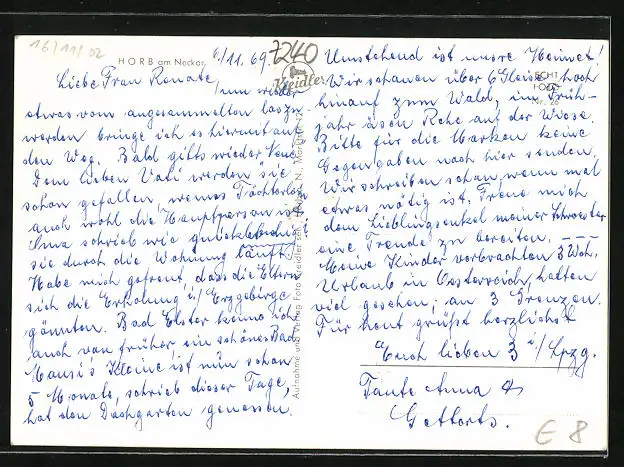 16/11/02
HORB am Neckar
6/11.69.
7240
Liebe Frau Renate, um wieder
etwas vom angesammelten loszu-
werden bringe ich es hiermit auf
den Weg. Bald gibts wieder Neue
Dem lieben Vati werden sie
schon gefallen, wenns Töchterlein
auch wohl die Hauptperson ist
schrieb wie
sie durch die Wohnung läuft.
Habe mich gefreut, dass die Eltern
sich die Erholung i/ Erzgebirge
gönnten. Bad Elster kenne ich
auch von früher ein schönes Bad
Mausi's Kleine ist nun schon
5 Monate, schrieb dieser Tage,
hat den Dachgarten genossen.
Aufnahme und Verlag Foto Keidler
Keidler
ECHT
FOTO
Nr. 26
Umstehend ist unsre Heimat!
Wir schauen über 6 Gleise hoch
hinauf zum Wald, im Früh-
jahr äsen Rehe auf der Wiese.
Bitte für die Marken keine
Gegengaben nach hier senden.
Wir schreiben schon wenn mal
etwas nötig ist. Freue mich
dem Lieblingsenkel meiner Schwester
eine Freude zu bereiten. —
Meine Kinder verbrachten 3 Woh.
Urlaub in Oesterreich, hatten
viel gesehen, an 3 Grenzen.
Für heut grüßt herzlichst
Euch lieben 3 i/ Lpzg.
Tante Anna &
Gottorts.
E 8